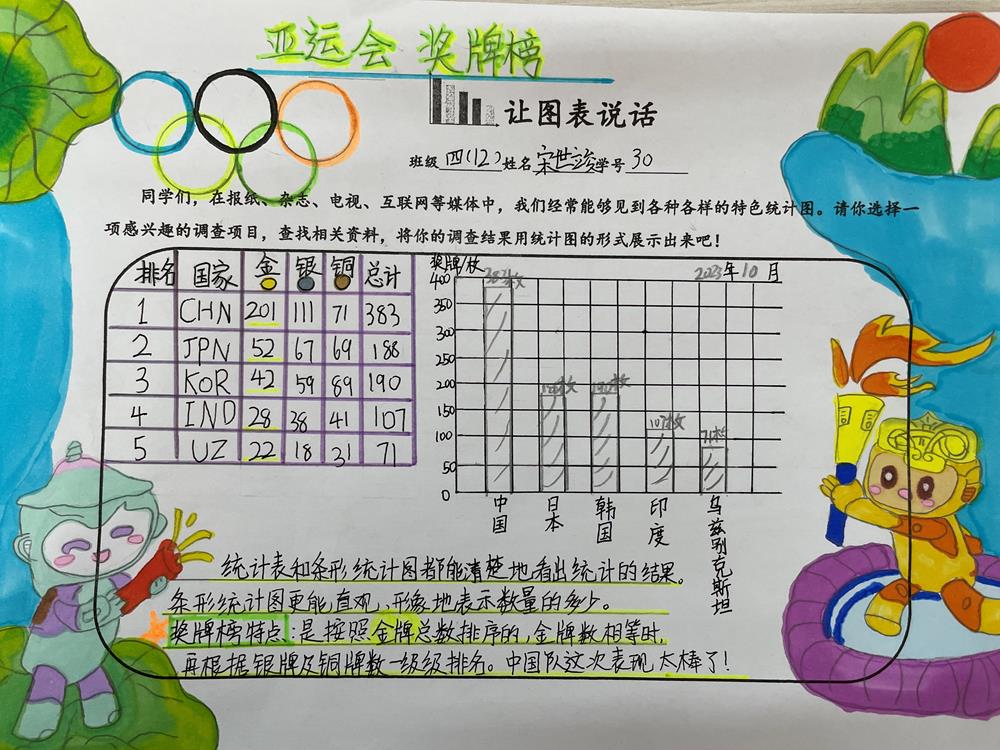 亚运会 奖牌榜
让图表说话
班级 四(12) 姓名 宋世竣 学号 30
同学们，在报纸、杂志、电视、互联网等媒体中，我们经常能够见到各种各样的特色统计图。请你选择一
项感兴趣的调查项目，查找相关资料，将你的调查结果用统计图的形式展示出来吧！
排名 国家 金 银 铜 总计
1 CHN 201 111 71 383
2 JPN 52 67 69 188
3 KOR 42 59 89 190
4 IND 28 38 41 107
5 UZ 22 18 31 71
奖牌/枚
2023年10月
400
350
300
250
200
150
100
50
0
383枚
188枚
190枚
107枚
71枚
中国
日本
韩国
印度
乌兹别克斯坦
统计表和条形统计图都能清楚地看出统计的结果。
条形统计图更能直观、形象地表示数量的多少。
奖牌榜特点：是按照金牌总数排序的，金牌数相等时，
再根据银牌及铜牌数一级级排名。中国队这次表现太棒了！